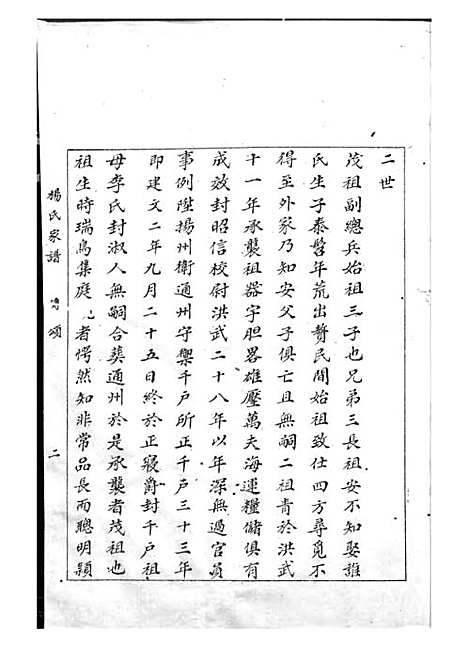 二世
茂祖副總兵始祖三子也兄弟三長祖安不知娶誰
氏生子泰髫年荒出贅民間始祖致仕四方尋覓不
得至外家乃知安父子俱亡且無嗣二祖青於洪武
十一年承襲祖器宇胆畧雄壓萬夫海運糧儲俱有
成效封昭信校尉洪武二十八年以年深無過官員
事例陞揚州衛通州守禦千戶所正千戶三十三年
即建文二年九月二十五日終於正寢爵封千戶祖
母李氏封淑人無嗣合葬通州於是承襲者茂祖也
祖生時瑞鳥集庭 者愕然知非常品長而聰明穎
楊氏家譜 頌 二